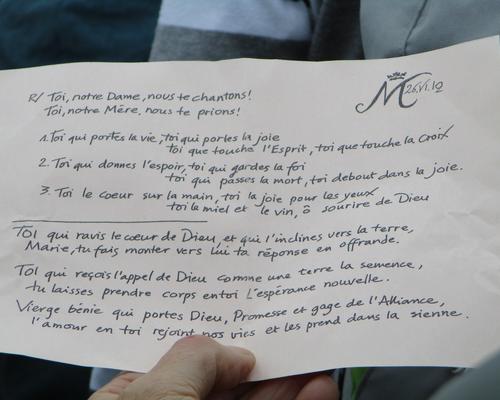 R/ Toi, notre Dame, nous te chantons!
Toi, notre Mère, nous te prions!
M 26.VI.12
1. Toi qui portes la vie, toi qui portes la joie
toi que touche l'Esprit, toi que touche la Croix
2. Toi qui donnes l'espoir, toi qui gardes la foi
toi qui passes la mort, toi debout dans la joie.
3. Toi le coeur sur la main, toi la joie pour les yeux
toi le miel et le vin, ô sourire de Dieu
TOI qui ravis le cœur de Dieu, et qui l'inclines vers la terre,
Marie, tu fais monter vers Lui ta réponse en offrande.
TOI qui reçois l'appel de Dieu comme une terre la semence,
tu laisses prendre corps en toi L'espérance nouvelle.
Vierge bénie qui portes Dieu, Promesse et gage de l'Alliance,
l'amour en toi rejoint nos vies et les prend dans la sienne.